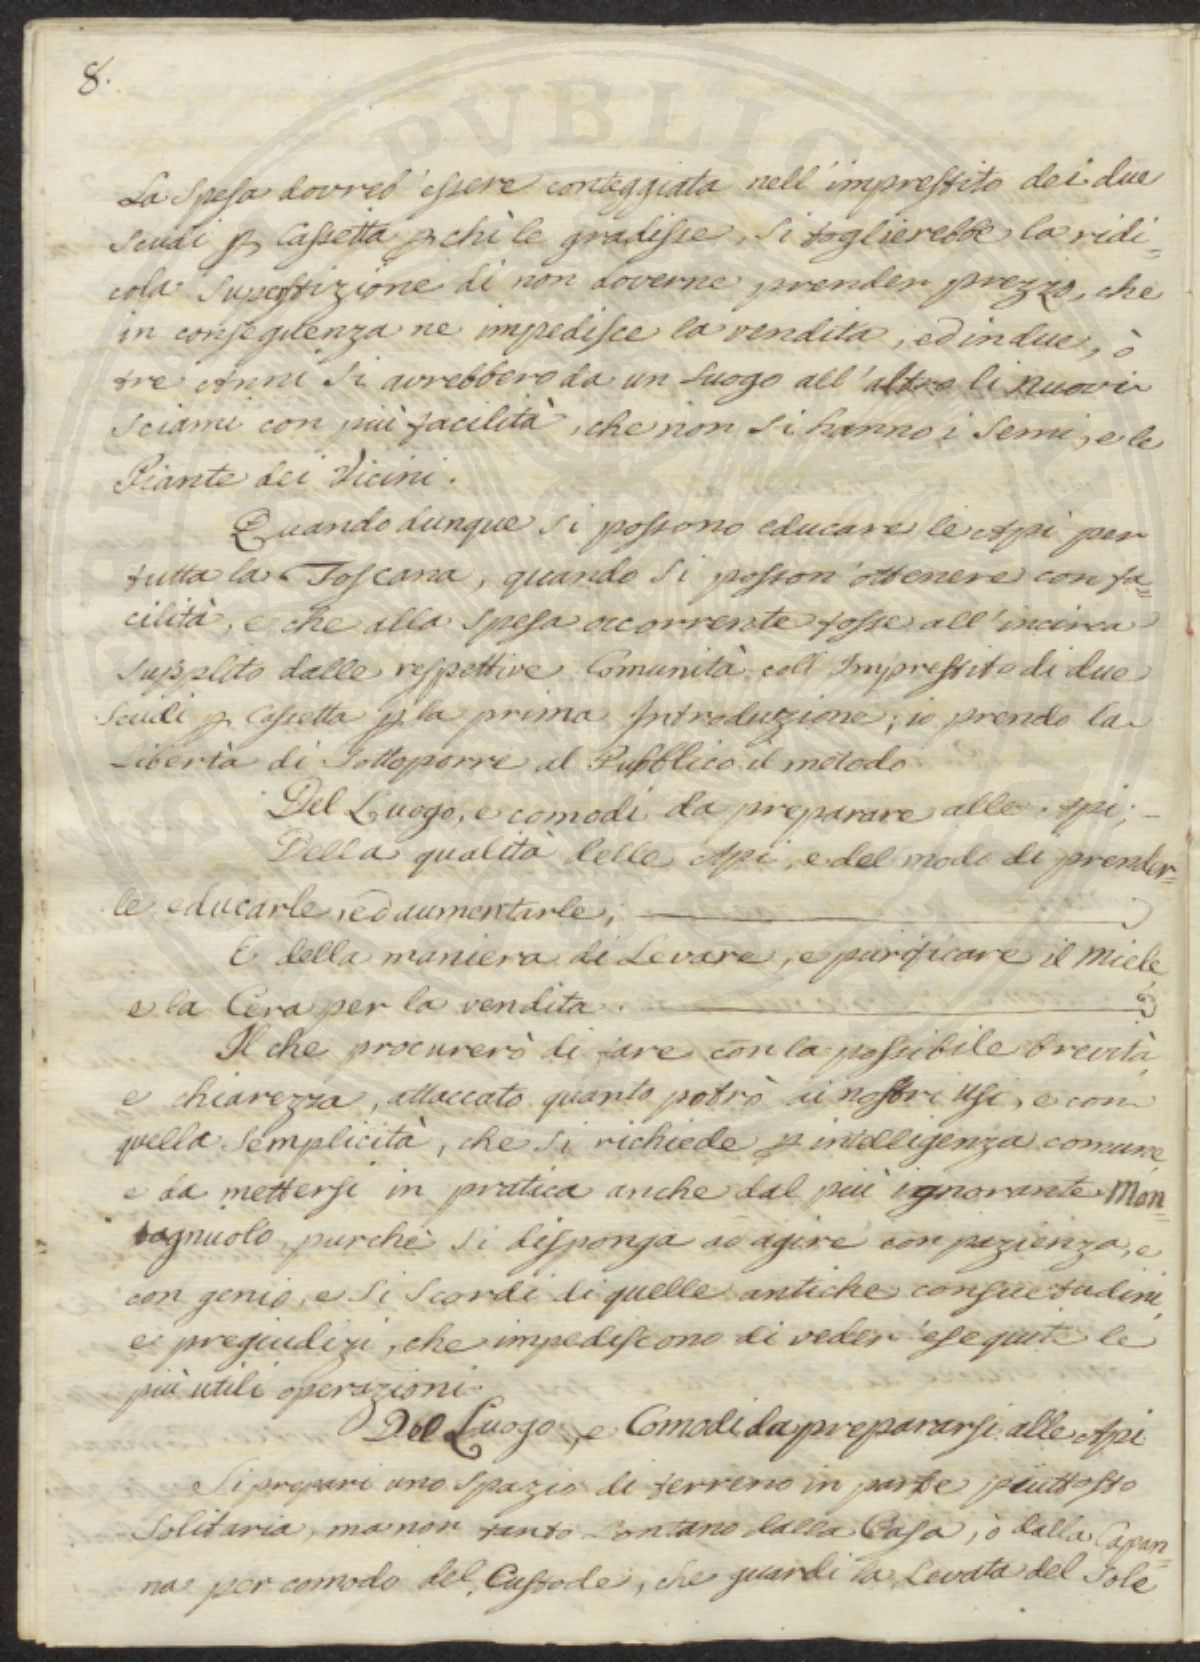 8.
La Spesa dovreb'essere conteggiata nell'imprestito dei due
Scudi p Cassetta p chi le gradisse, Si toglierebbe la ridi=
cola Superstizione di non doverne prender prezzo, che
in conseguenza ne impedisce la vendita, ed in due, ò
tre Anni Si avrebbero da un Luogo all'altro li nuovi
Sciami con più facilità, che non Si hanno i Semi, e le
Piante dei Vicini.
Quando dunque Si possono educare le Api per
tutta la Toscana, quando Si posson'ottenere con fa=
cilità, e che alla Spesa occorrente fosse all'incirca
Supplito dalle respettive Comunità coll'Imprestito di due
Scudi p Cassetta p la prima Introduzione; io prendo la
Libertà di Sottoporre al Pubblico il metodo
Del Luogo, e comodi da preparare alle Api;
Della qualità delle Api, e del modo di prender=
le educarle, ed aumentarle;
E della maniera di Levare, e purificare il Miele,
e la Cera per la vendita.
Il che procurerò di fare con la possibile brevità,
e chiarezza, attaccato quanto potrò ai nostri Usi, e con
quella Semplicità, che Si richiede p intelligenza comune,
e da mettersi in pratica anche dal più ignorante Mon=
tagnuolo, purchè Si disponga ad agire con pazienza, e
con genio, e Si Scordi di quelle antiche consuetudini,
e pregiudizi, che impediscono di veder'eseguite le
più utili operazioni.
Del Luogo, e Comodi da prepararsi alle Api
Si prepari uno Spazio di terreno in parte piuttosto
Solitaria, ma non tanto Lontano dalla Casa, ò dalla Capan=
na per comodo del Custode, che guardi la Levata del Sole
PVBLIC